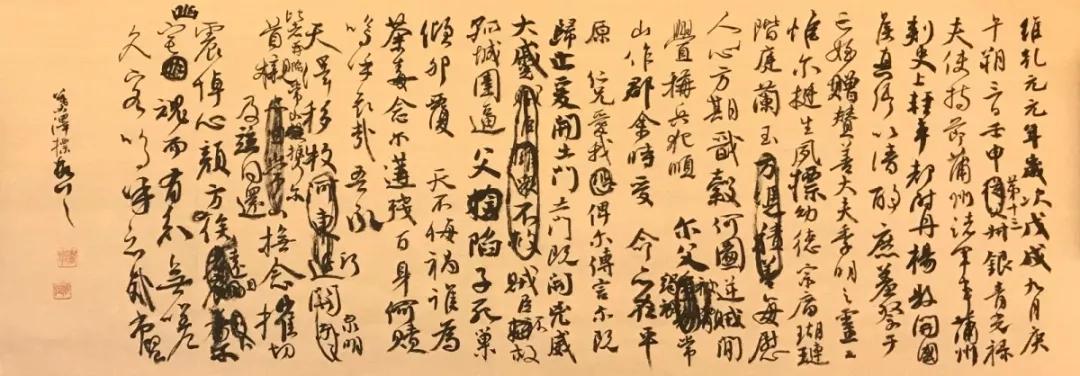 維乾元元年歲次戊戌九月庚
午朔三日壬申第十三叔銀青光祿
夫使持節蒲州諸軍事蒲州
刺史上輕車都尉丹楊縣開國
侯真卿以清酌庶羞祭于
亡姪贈贊善大夫季明之靈曰
惟爾挺生夙標幼德宗廟瑚璉
階庭蘭玉方憑積善每慰
人心方期戩穀何圖逆賊間
釁稱兵犯順爾父竭誠常
山作郡余時受命亦在平
原仁兄愛我俾爾傳言爾既
歸止爰開土門土門既開凶威
大蹙賊臣不救
孤城圍逼父陷子死巢
傾卵覆天不悔禍誰為
荼毒念爾遘殘百身何贖
嗚呼哀哉吾承
天澤移牧河東近泉明
比者再陷常山攜爾
首櫬及茲同還撫念摧切
震悼心顏方俟遠日
幽宅魂而有知無嗟
久客嗚呼哀哉尚饗